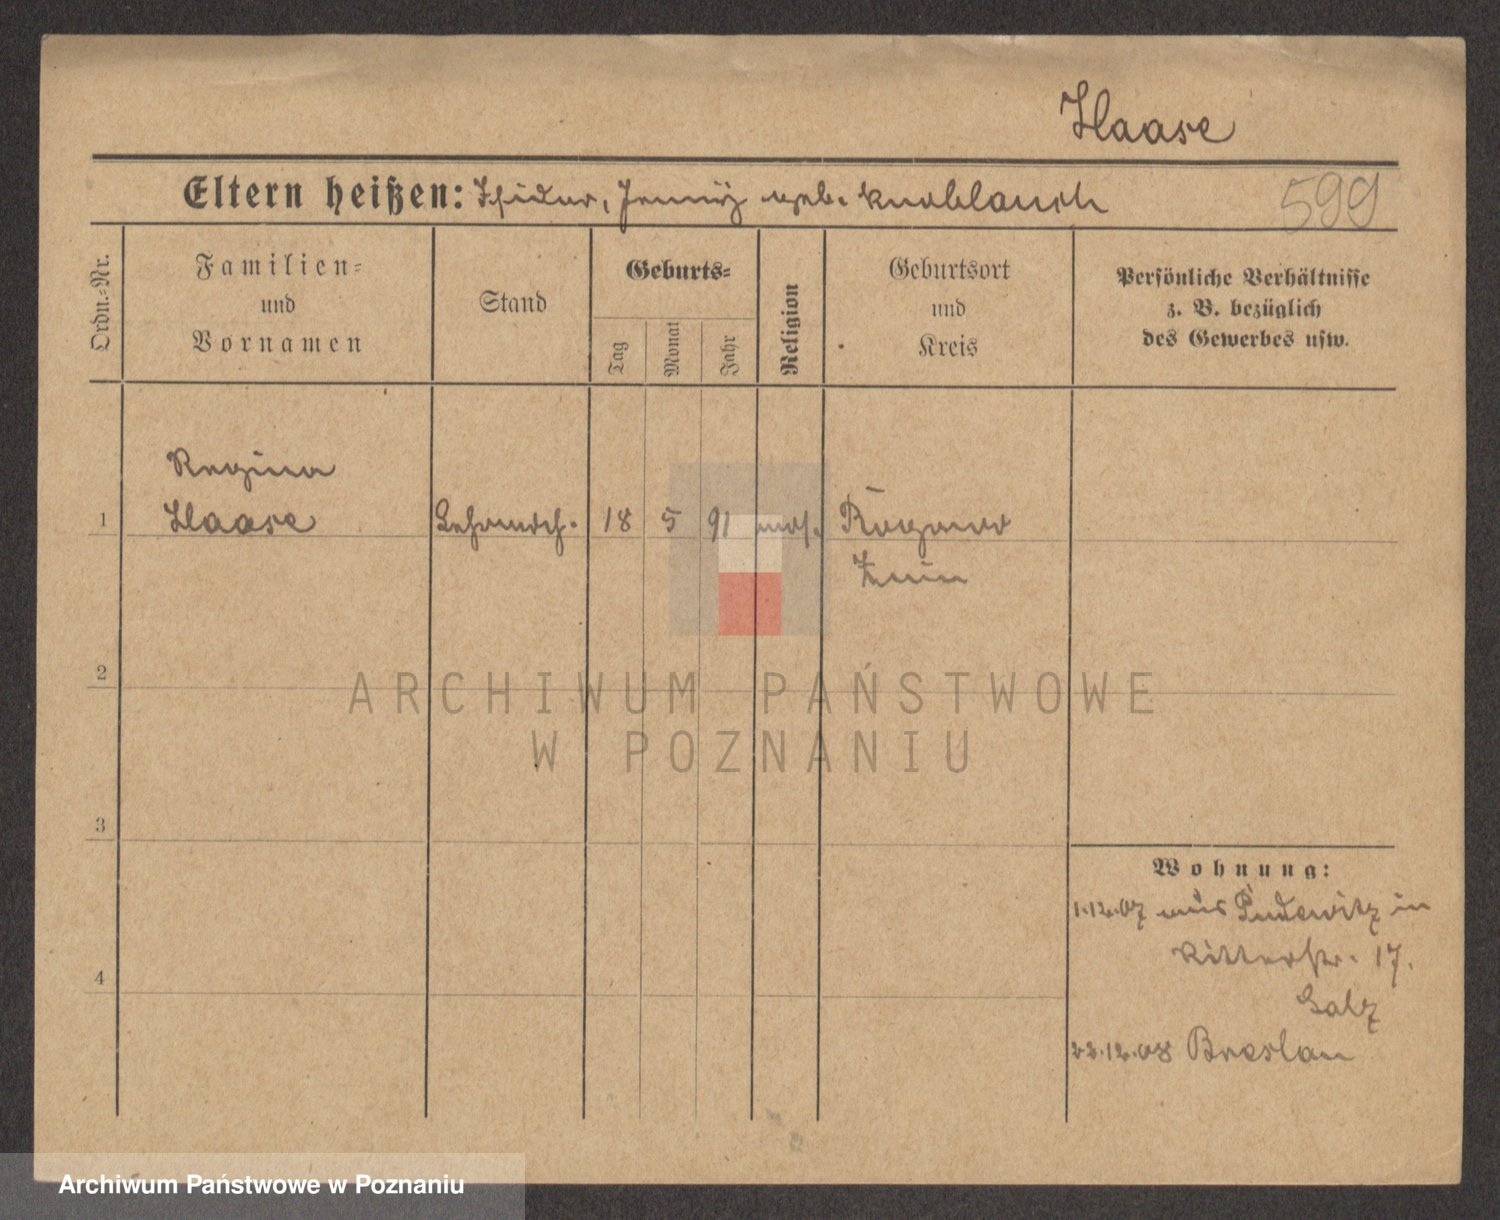 Haase
Eltern heißen: Isidor, Jenny geb. Knoblauch
599
Ordn.-Nr.
Familien-
und
Vornamen
Stand
Geburts-
Tag
Monat
Jahr
Religion
Geburtsort
und
Kreis
Persönliche Verhältnisse
z. B. bezüglich
des Gewerbes usw.
Regina
1 Haase Lehrmdch. 18 5 91 mos. Rogowo
Znin
2
ARCHIWUM PAŃSTWOWE
W POZNANIU
3
Wohnung:
1.12.07 aus Pudewitz in
Ritterstr. 17.
4
22.12.08 Breslau
Archiwum Państwowe w Poznaniu